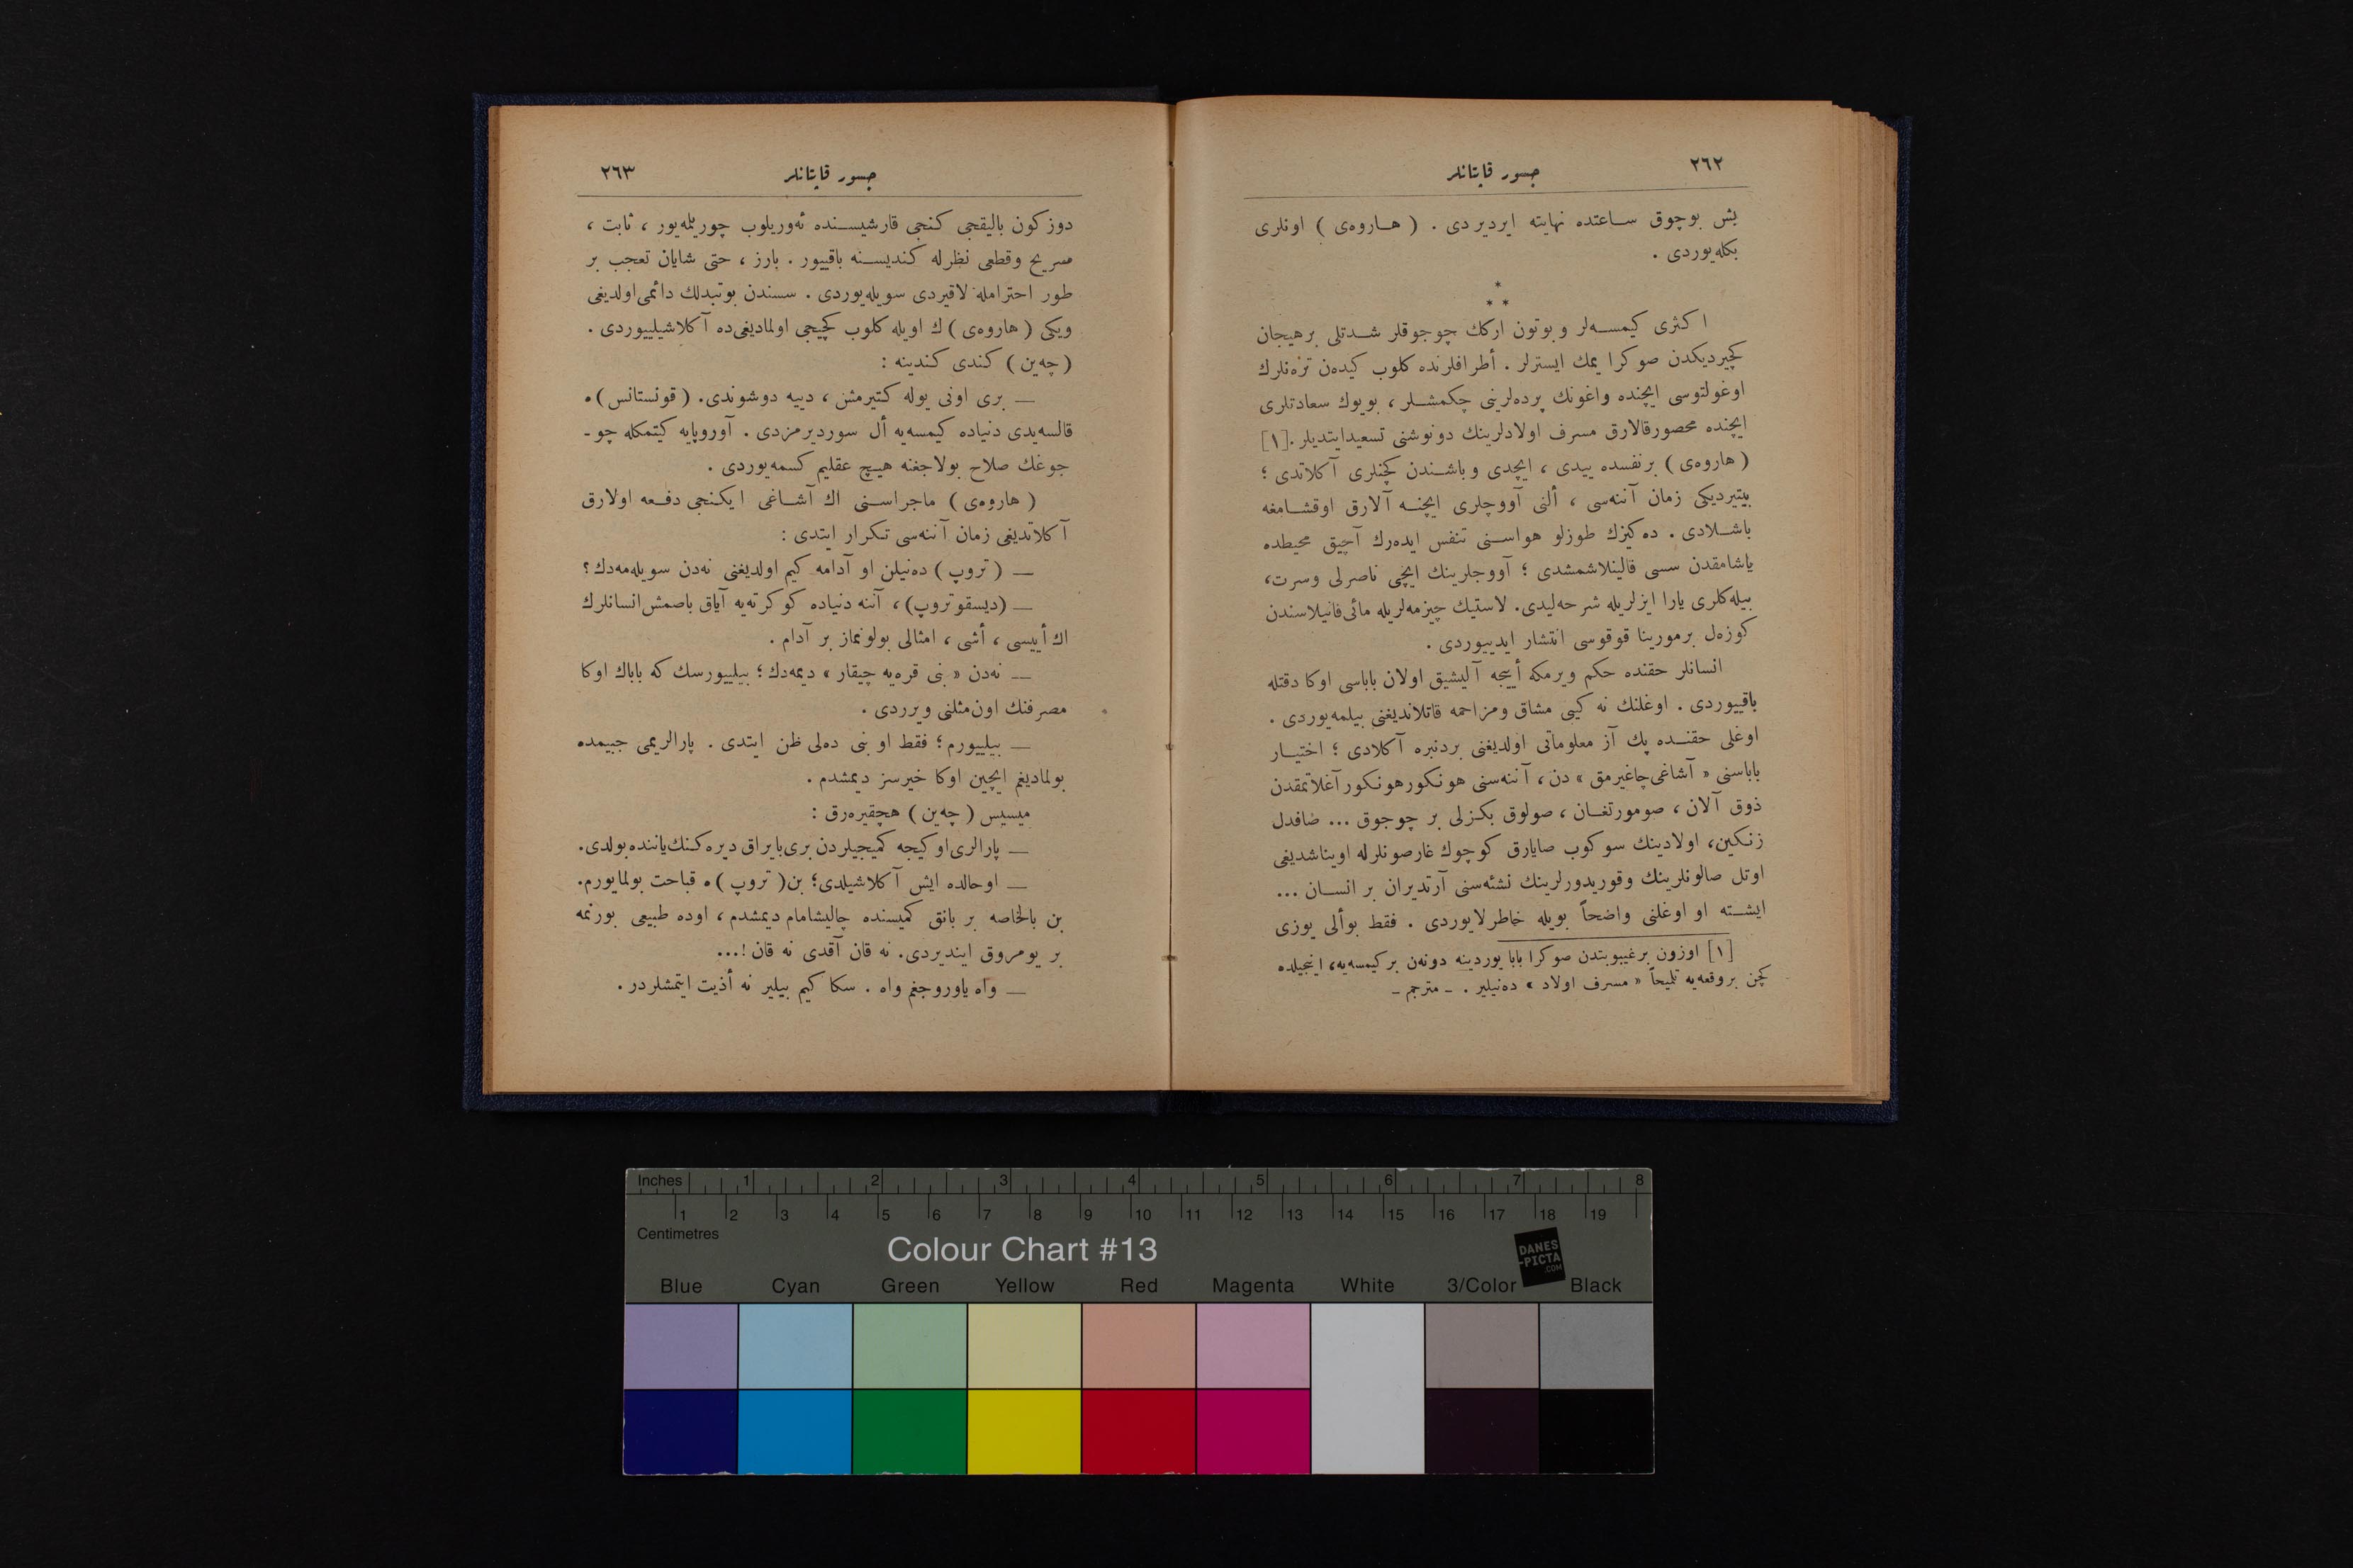 ٢٦٢
جسور قاپتانلر
بش بوچوق ساعتده نهايته ايرديردی . ( هاروه‌ی ) اونلری
بكله‌يوردی .
*
* *
اكثری كيمسه‌لر و بوتون ارككك چوجوقلر شدتلی برهيجان
كچيرديكدن صوكرا يمك ايسترلر . أطرافلرنده كلوب كيده‌ن تره‌نلرك
اوغولتوسی ايچنده واغونك پرده‌لرينی چكمشلر ، بويوك سعادتلری
ايچنده محصورقالارق مسرف اولادلرينك دونوشنی تسعيدايتديلر .[١]
( هاروه‌ی ) برنفسده ييدی ، ايچدی و باشندن كچنلری آكلاتدی ؛
بيتيرديكی زمان آننه‌سی ، ألنی آووچلری ايچنه آلارق اوقشامغه
باشلادی . ده‌كيزك طوزلو هواسنی تنفس ايده‌رك آچيق محيطده
ياشامقدن سسی قالينلاشمشدی ؛ آووجلرينك ايچی ناصرلی وسرت،
بيله‌كلری يارا ايزلريله شرحه‌ليدی. لاستيك چيزمه‌لريله مائی فانيلاسندن
كوزه‌ل برمورينا قوقوسی انتشار ايدييوردی .
انسانلر حقنده حكم ويرمكه أييجه آليشيق اولان باباسی اوكا دقتله
باقييوردی . اوغلنك نه كيبی مشاق ومزاحمه قاتلانديغنی بيلمه‌يوردی .
اوغلی حقنده پك آز معلوماتی اولديغنی بردنبره آكلادی ؛ اختيار
باباسنی « آشاغی چاغيرمق » دن ، آننه‌سنی هونكورهونكور آغلاتمقدن
ذوق آلان ، صومورتغان ، صولوق بكزلی بر چوجوق ... صافدل
زنكين، اولادينك سوكوب صايارق كوچوك غارصونلرله اويناشديغی
اوتل صالونلرينك وقوريدورلرينك نشئه‌سنی آرتديران بر انسان ...
ايشته او اوغلنی واضحاً بويله خاطرلايوردی . فقط بوألی يوزی
[١] اوزون برغيبوبتدن صوكرا بابا يوردينه دونه‌ن بركيمسه‌يه، انجيلده
كچن بروقعه‌يه تلميحاً « مسرف اولاد » ده‌نيلير . ـ مترجم ـ
جسور قاپتانلر
٢٦٣
دوزكون باليقجی كنجی قارشيسنده ئه‌وريلوب چوريلمه‌يور ، ثابت ،
صريح وقطعی نظرله كنديسنه باقييور . بارز ، حتی شايان تعجب بر
طور احترامله لاقيردی سويله‌يوردی . سسندن بوتبدلك دائمی اولديغی
ويكی ( هاروه‌ی ) ك اويله كلوب كچيجی اولماديغی‌ده آكلاشيلييوردی .
( چه‌ين ) كندی كندينه :
— بری اونی يوله كتيرمش ، دييه دوشوندی. ( قونستانس )ه
قالسه‌يدی دنياده كيمسه‌يه أل سورديرمزدی . آوروپايه كيتمكله چو-
جوغك صلاح بولاجغنه هيچ عقليم كسمه‌يوردی .
( هاروه‌ی ) ماجراسنی اك آشاغی ايكنجی دفعه اولارق
آكلاتديغی زمان آننه‌سی تكرار ايتدی :
— ( تروپ ) ده‌نيلن او آدامه كيم اولديغنی نه‌دن سويله‌مه‌دك ؟
— (ديسقوتروپ)، آننه دنياده كوكرته‌يه آياق باصمش انسانلرك
اك أييسی ، أشی ، امثالی بولونماز بر آدام .
— نه‌دن « بنی قره‌يه چيقار » ديمه‌دك ؛ بيلييورسك كه باباك اوكا
مصرفنك اون مثلنی ويرردی .
— بيلييورم ؛ فقط او بنی ده‌لی ظن ايتدی . پارالريمی جيبمده
بولماديغم ايچين اوكا خيرسز ديمشدم .
ميسيس ( چه‌ين ) هچقيره‌رق :
— پارالری اوكيجه كميجيلردن بری بايراق ديره‌كنك ياننده بولدی.
— اوحالده ايش آكلاشيلدی؛ بن ( تروپ )ه قباحت بولمايورم.
بن بالخاصه بر بانق كميسنده چاليشامام ديمشدم ، اوده طبيعی بورنمه
بر يومروق اينديردی. نه قان آقدی نه قان !...
— واه ياوروجغم واه . سكا كيم بيلير نه أذيت ايتمشلردر .
Inches 1 2 3 4 5 6 7 8
1 2 3 4 5 6 7 8 9 10 11 12 13 14 15 16 17 18 19
Centimetres
Colour Chart #13
DANES
-PICTA
.COM
Blue Cyan Green Yellow Red Magenta White 3/Color Black